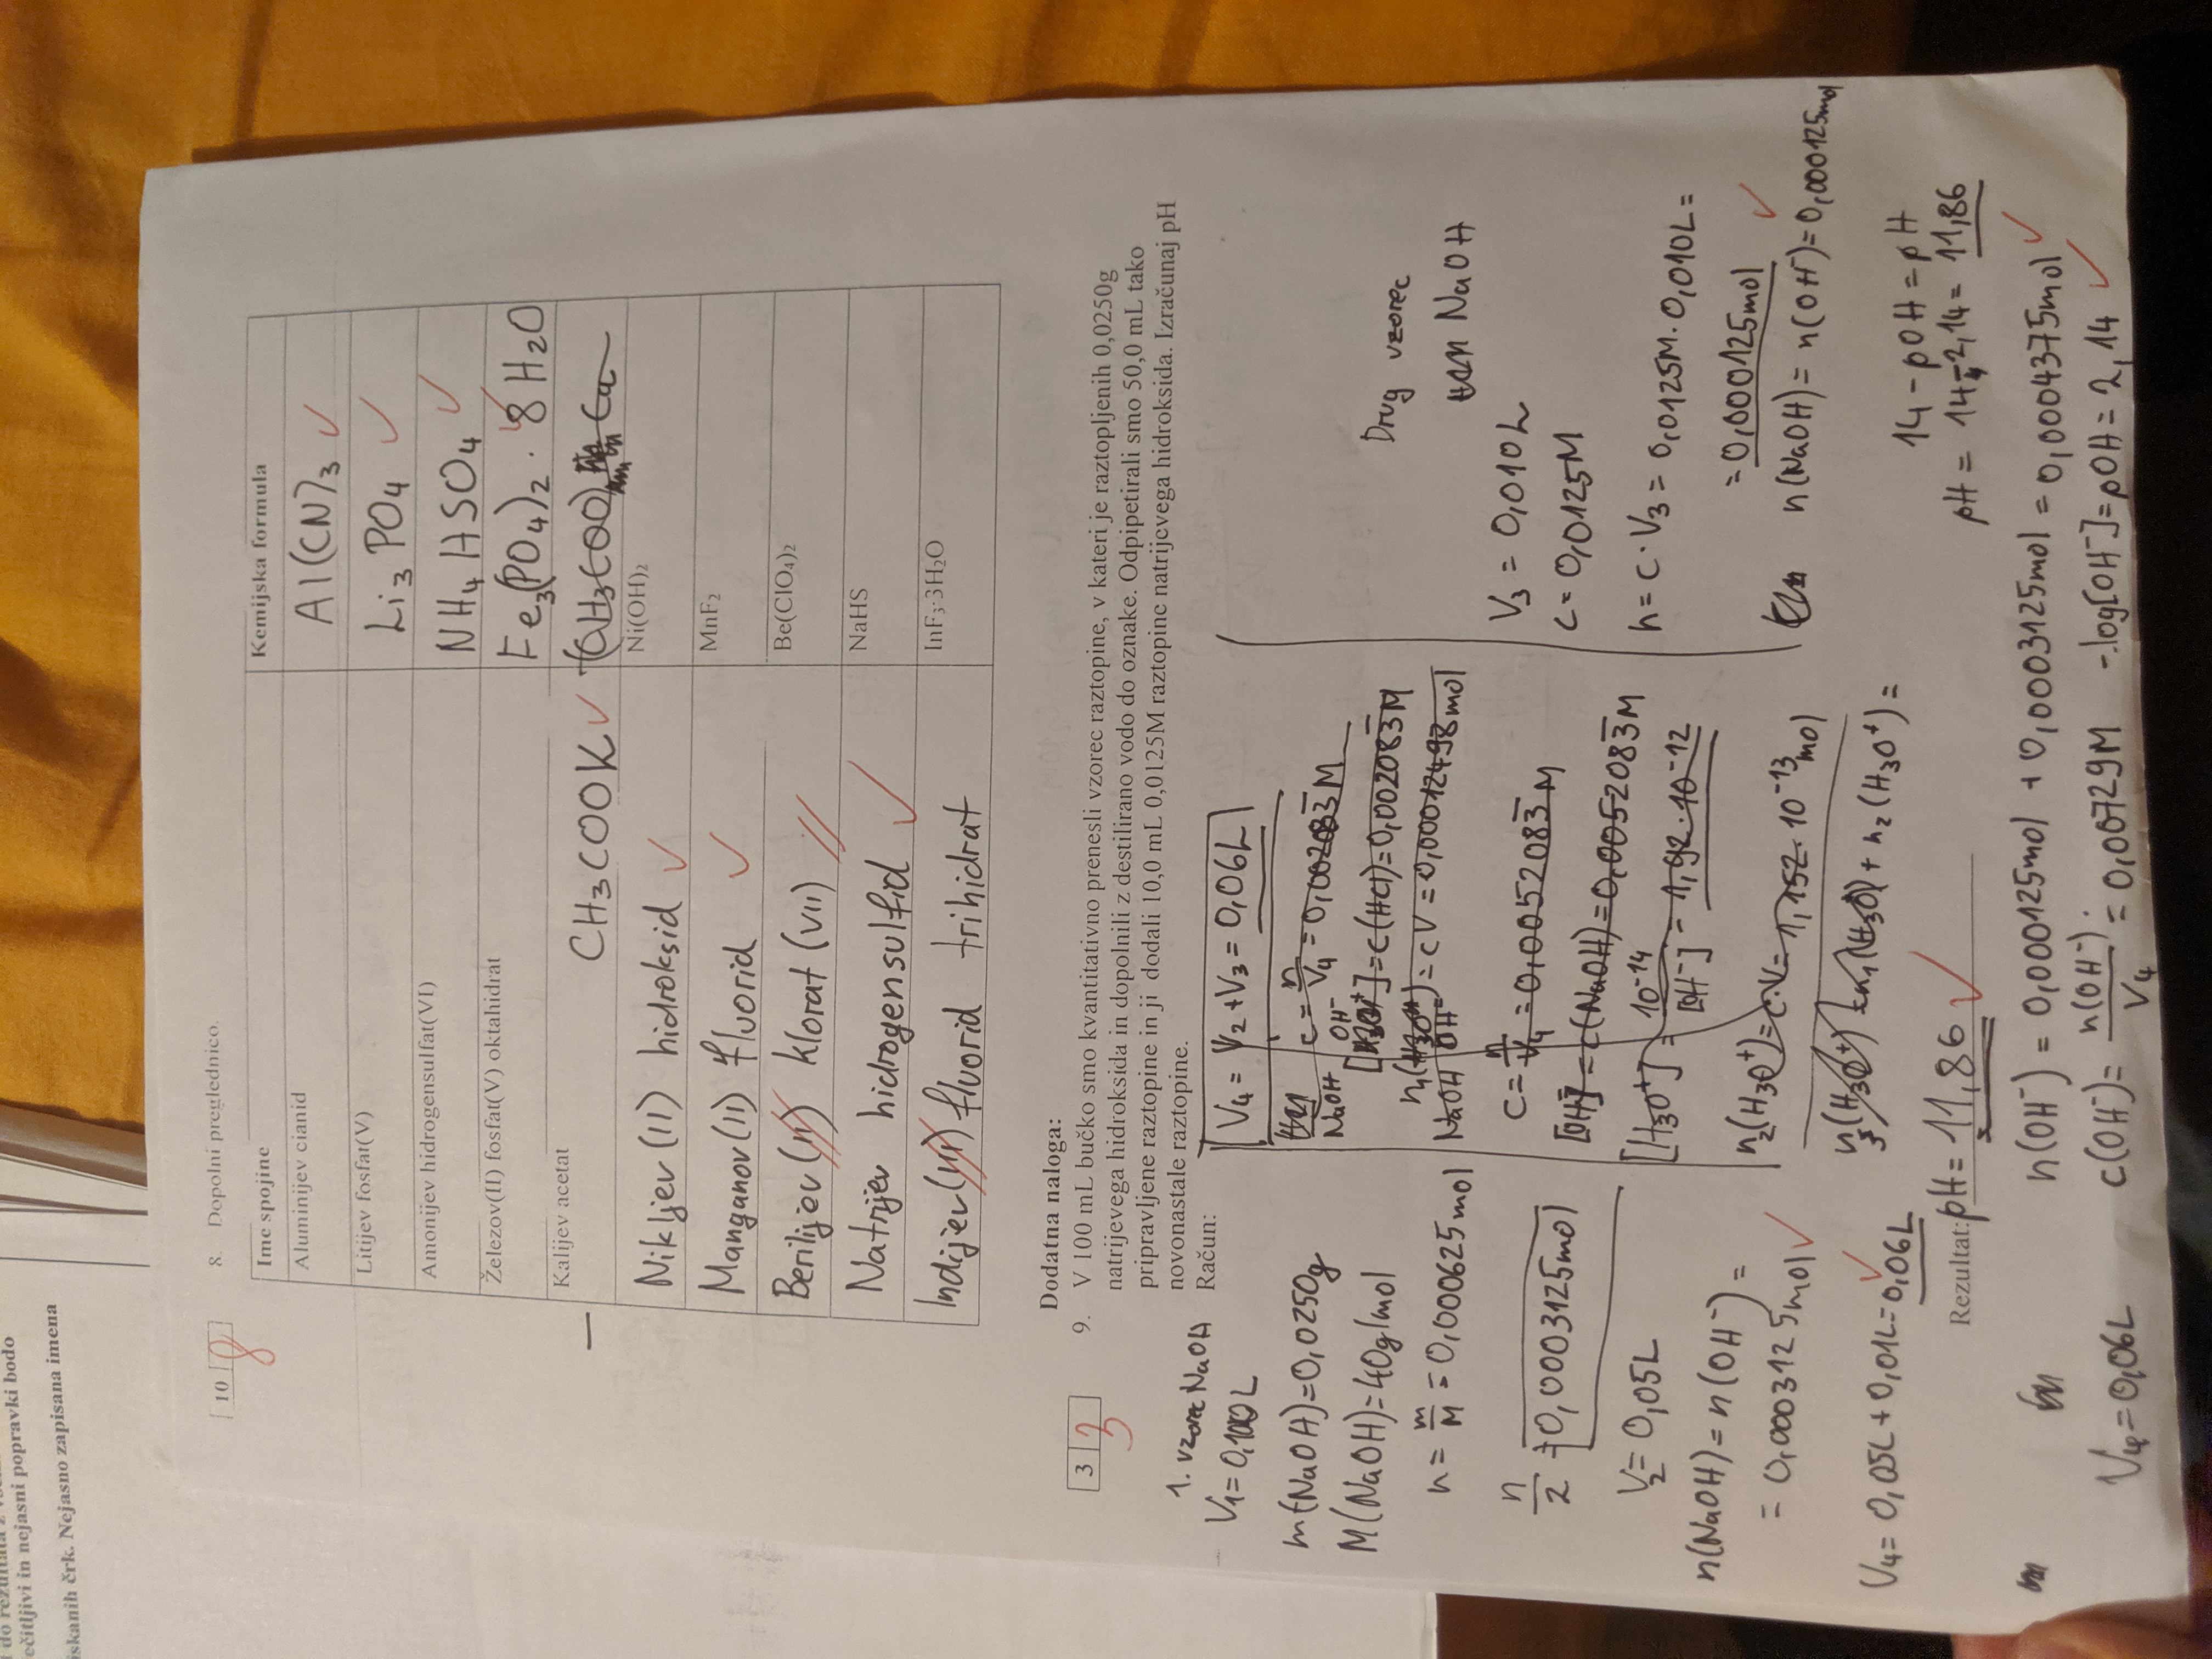 do rezultata z
ečitljivi in nejasni popravki bodo
iskanih črk. Nejasno zapisana imena
10 8
8. Dopolni preglednico.
Ime spojine Kemijska formula
Aluminijev cianid Al(CN)3 ✓
Litijev fosfat(V) Li3PO4 ✓
Amonijev hidrogensulfat(VI) NH4HSO4 ✓
Železov(II) fosfat(V) oktahidrat Fe3(PO4)2 · 8H2O ✓
Kalijev acetat CH3COOK ✓ (CH3COO) Ca
Nikljev(II) hidroksid ✓ Ni(OH)2
Manganov(II) fluorid ✓ MnF2
Berilijev(II) klorat(VII) // Be(ClO4)2
Natrijev hidrogensulfid ✓ NaHS
Indijev(III) fluorid trihidrat InF3·3H2O
Dodatna naloga:
3 3
9. V 100 mL bučko smo kvantitativno prenesli vzorec raztopine, v kateri je raztopljenih 0,0250g
natrijevega hidroksida in dopolnili z destilirano vodo do oznake. Odpipetirali smo 50,0 mL tako
pripravljene raztopine in ji dodali 10,0 mL 0,0125M raztopine natrijevega hidroksida. Izračunaj pH
novonastale raztopine.
Račun:
1. vzorec NaOH
V1=0,100L
m(NaOH)=0,0250g
M(NaOH)=40g/mol
n= m/M =0,000625mol
n/2 =0,0003125mol
V2=0,05L
n(NaOH)=n(OH-)=
=0,0003125mol ✓
V4=0,05L+0,01L=0,06L ✓
V4=V2+V3=0,06L
NaOH OH-
c= n/V4 =0,002083M
[H3O+]=c(HCl)=0,002083M
n1(H3O+)=cV=0,00012498mol
NaOH OH-
c= n/V4 =0,0052083M
[OH-]=c(NaOH)=0,0052083M
[H3O+]= 10-14/[OH-] =1,92·10-12
n2(H3O+)=c·V=1,152·10-13mol
n3(H3O+)=n1(H3O)+n2(H3O+)=
Drug vzorec
NaOH
V3=0,010L
c=0,0125M
n=c·V3=0,0125M·0,010L=
=0,000125mol ✓
n(NaOH)=n(OH-)=0,000125mol
14-pOH=pH
pH=14-2,14=11,86
Rezultat: pH=11,86 ✓
n(OH-)=0,000125mol+0,0003125mol=0,0004375mol ✓
V4=0,06L c(OH-)= n(OH-)/V4 =0,00729M -log[OH-]=pOH=2,14 ✓